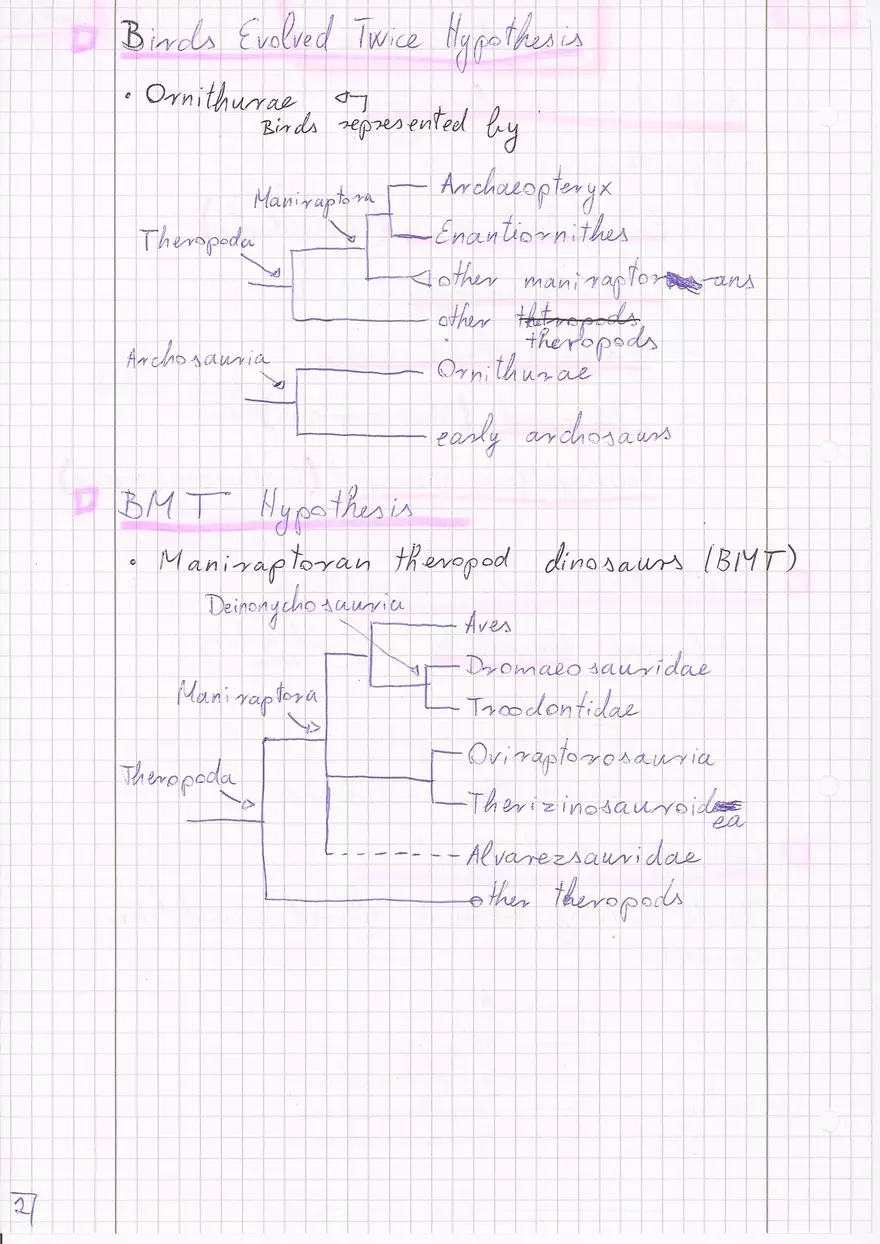 Birds Evolved Twice Hypothesis
• Ornithurae
Birds represented by
Archaeopteryx
Maniraptora
Enantiornithes
Theropoda
other maniraptor-ans
other thetropods
theropods
Archosauria
Ornithurae
early archosaurs
BMT Hypothesis
• Maniraptoran theropod dinosaurs (BMT)
Deinonychosauria
Aves
Dromaeosauridae
Maniraptora
Troodontidae
Oviraptorosauria
Theropoda
Therizinosauroid
ea
Alvarezsauridae
other theropods
2